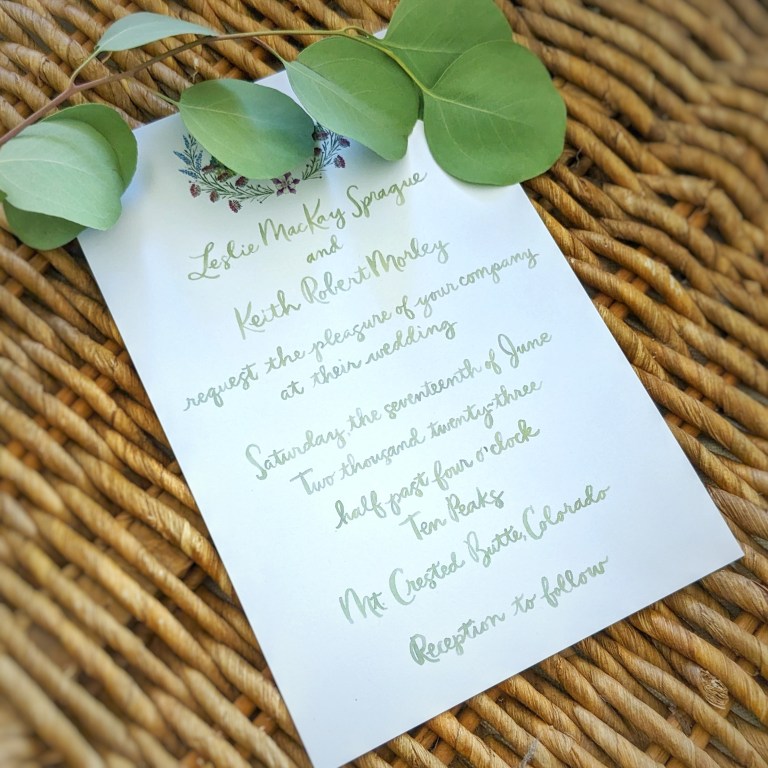 Leslie MacKay Sprague
and
Keith Robert Morley
request the pleasure of your company
at their wedding
Saturday, the seventeenth of June
Two thousand twenty-three
half past four o'clock
Ten Peaks
Mt. Crested Butte, Colorado
Reception to follow